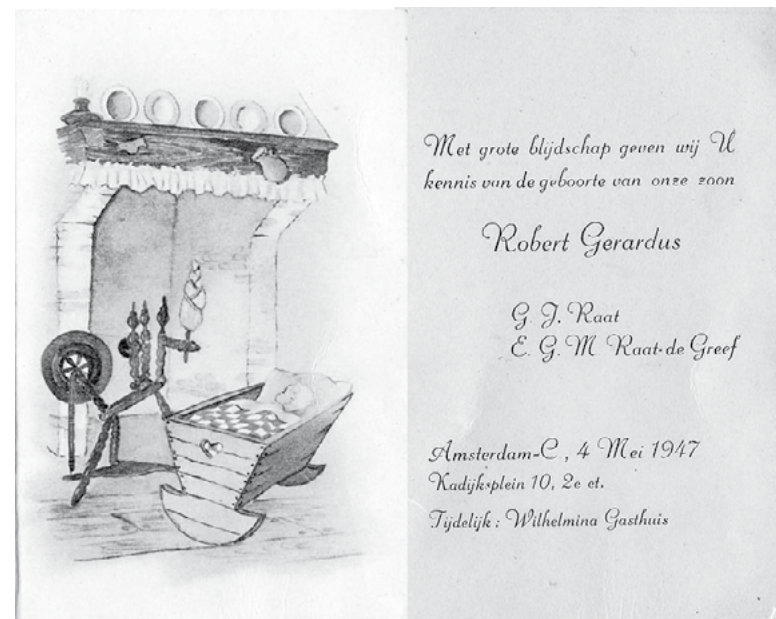 Met grote blijdschap geven wij U
kennis van de geboorte van onze zoon
Robert Gerardus
G. J. Raat
E. G. M Raat-de Greef
Amsterdam-C, 4 Mei 1947
Kadijksplein 10, 2e et.
Tijdelijk: Wilhelmina Gasthuis